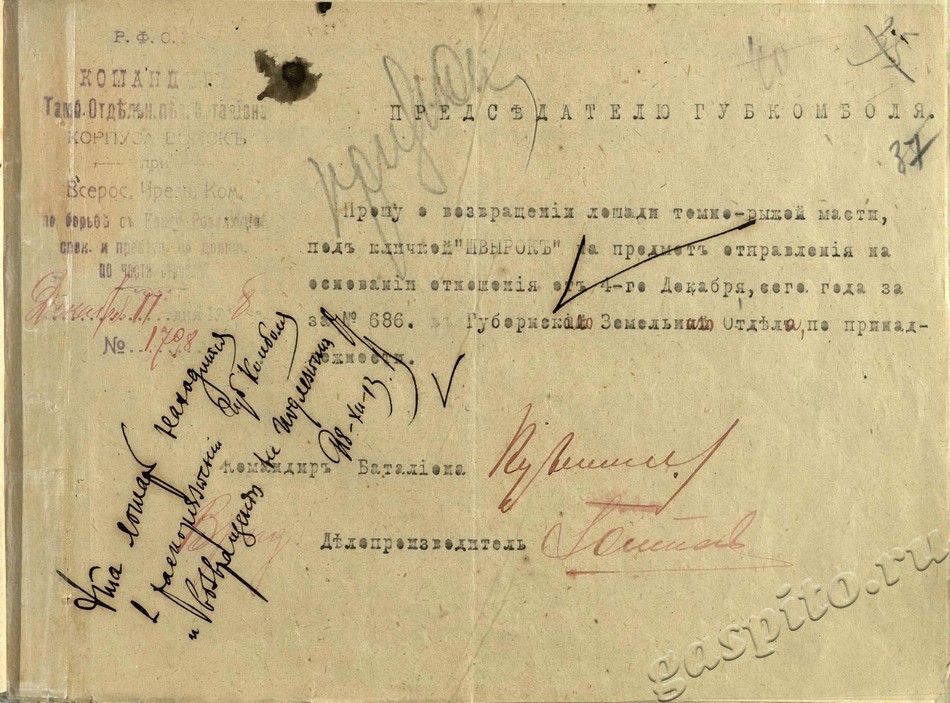 Р. Ф. С.
КОМАНДИ
Тамб. Отдѣльн.
КОРПУСА ВОЙСКЪ
при
Всерос. Чрезв. Ком.
по борьбѣ съ
спек. и
Декабря 11 дня 8
№ 1798
40
ПРЕДСѢДАТЕЛЮ ГУБКОМБОЛЯ.
37
Прошу о возвращеніи лошади темно-рыжей масти,
подъ кличкой "ШВЫРОКЪ" на предметъ отправленія на
основаніи отношенія отъ 4-го Декабря, сего года за
за № 686. въ Губернскій Земельный Отдѣл, по принад-
лежности.
Командиръ Баталіона
Дѣлопроизводитель
Эта лошадь находится
в распоряжении Губкомболя
и возвращению не подлежит
18-XII-
gaspito.ru